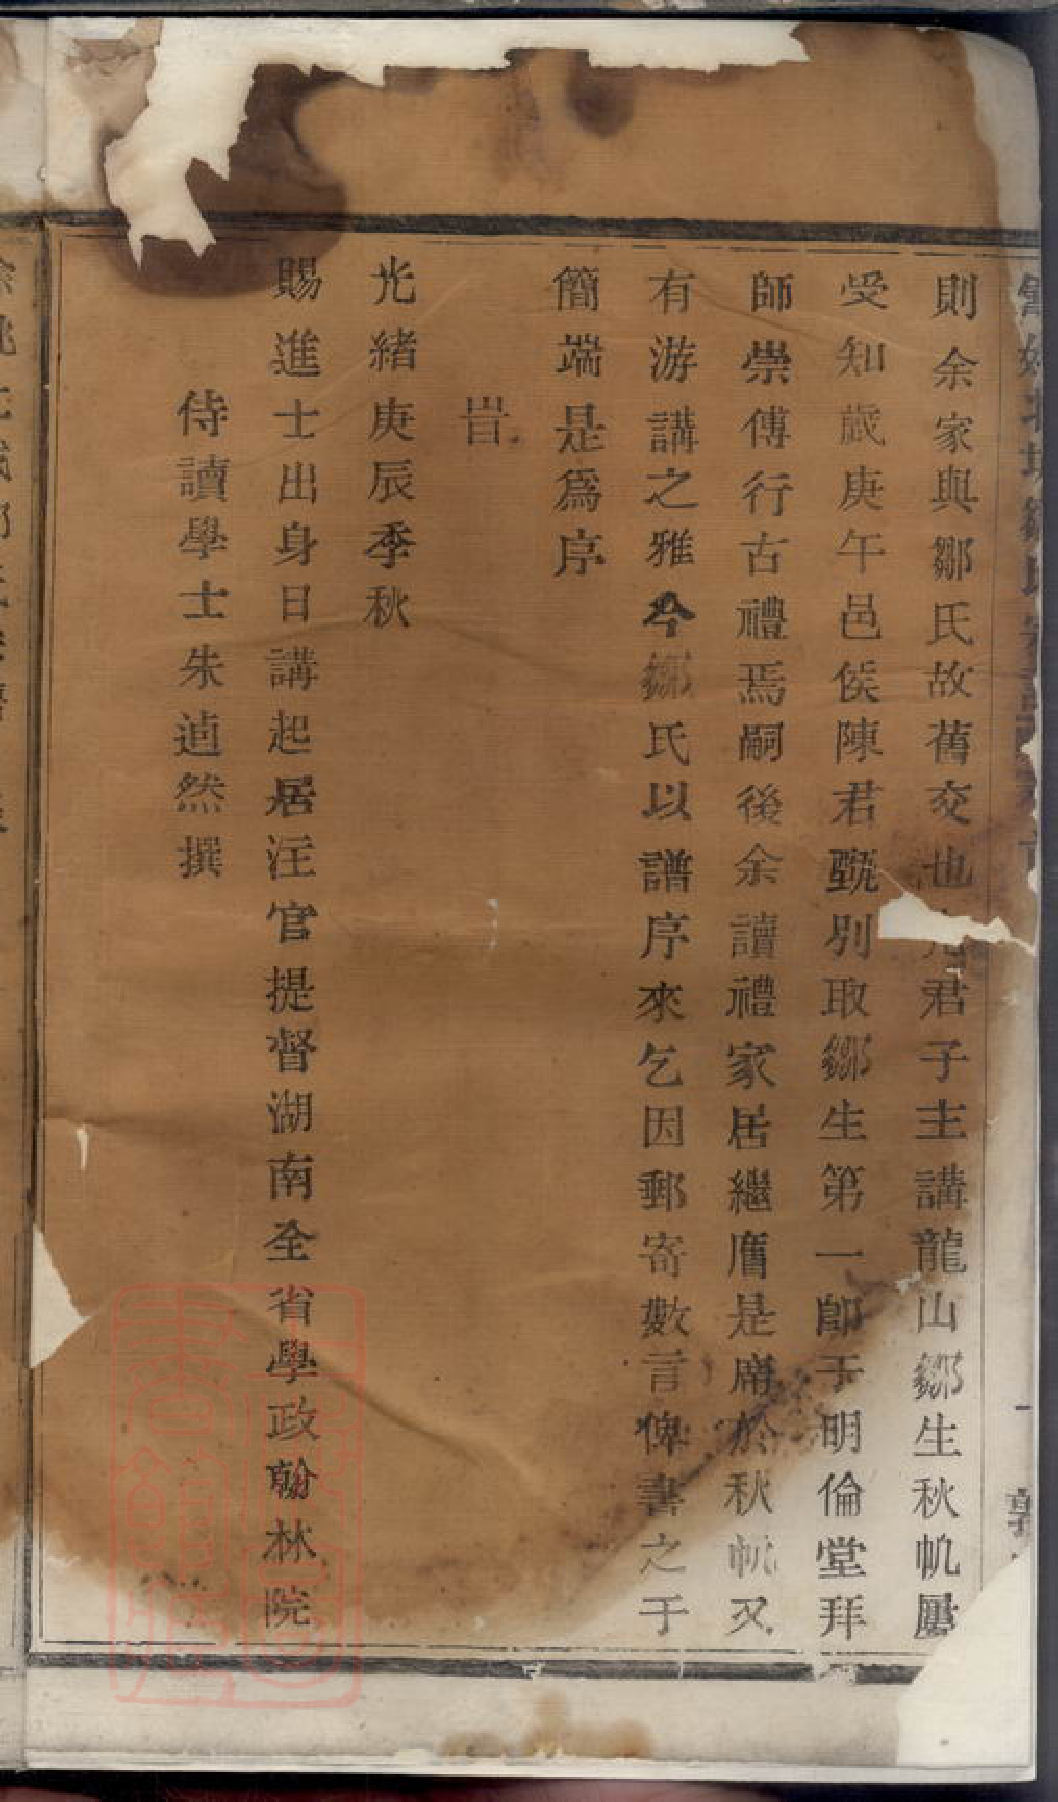 則余家與鄒氏故舊交也先君子主講龍山鄒生秋帆屬
受知歲庚午邑侯陳君甄別取鄒生第一即于明倫堂拜
師崇傅行古禮焉嗣後余讀禮家居繼膺是席於秋帆又
有游講之雅今鄒氏以譜序來乞因郵寄數言俾書之于
簡端是爲序
旹
光緒庚辰季秋
賜進士出身日講起居注官提督湖南全省學政翰林院
侍讀學士朱逌然撰